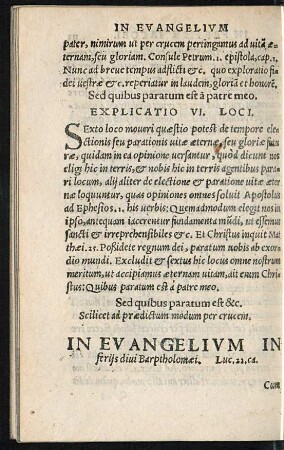 IN EVANGELIVM
pater, nimirum ut per crucem pertingamus ad uitã æ-
ternam, seu gloriam. Consule Petrum.11. epistola, cap.1.
Nunc ad breue tempus adflicti &c. quo exploratio fi-
dei uestræ &c. reperiatur in laudem, gloriã et honorẽ.
Sed quibus paratum est à patre meo.
EXPLICATIO VI. LOCI.
Sexto loco moueri quæstio potest de tempore ele-
ctionis seu parationis uitæ æternæ, seu gloriæ futu
ræ, quidam in ea opinione uersantur, quod dicunt nos
eligi hic in terris, & nobis hic in terris agentibus para-
ri locum, alij aliter de electione & paratione uitæ æter
næ loquuntur, quas opiniones omnes soluit Apostolus
ad Ephesios.1. his uerbis: Quemadmodum elegit nos in
ipso, antequam iacerentur fundamenta mũdi, ut essemus
sancti & irreprehensibiles & c. Et Christus inquit Ma
thæi. 25. Possidete regnum dei, paratum nobis ab exor-
dio mundi. Excludit & sextus hic locus omne nostrum
meritum, ut accipiamus æternam uitam, ait enim Chri-
stus: Quibus paratum est à patre meo.
Sed quibus paratum est &c.
Scilicet ad prædictum modum per crucem.
IN EVANGELIVM IN
ferijs diui Bartholomæi. Luc. 22. ca.
Cum